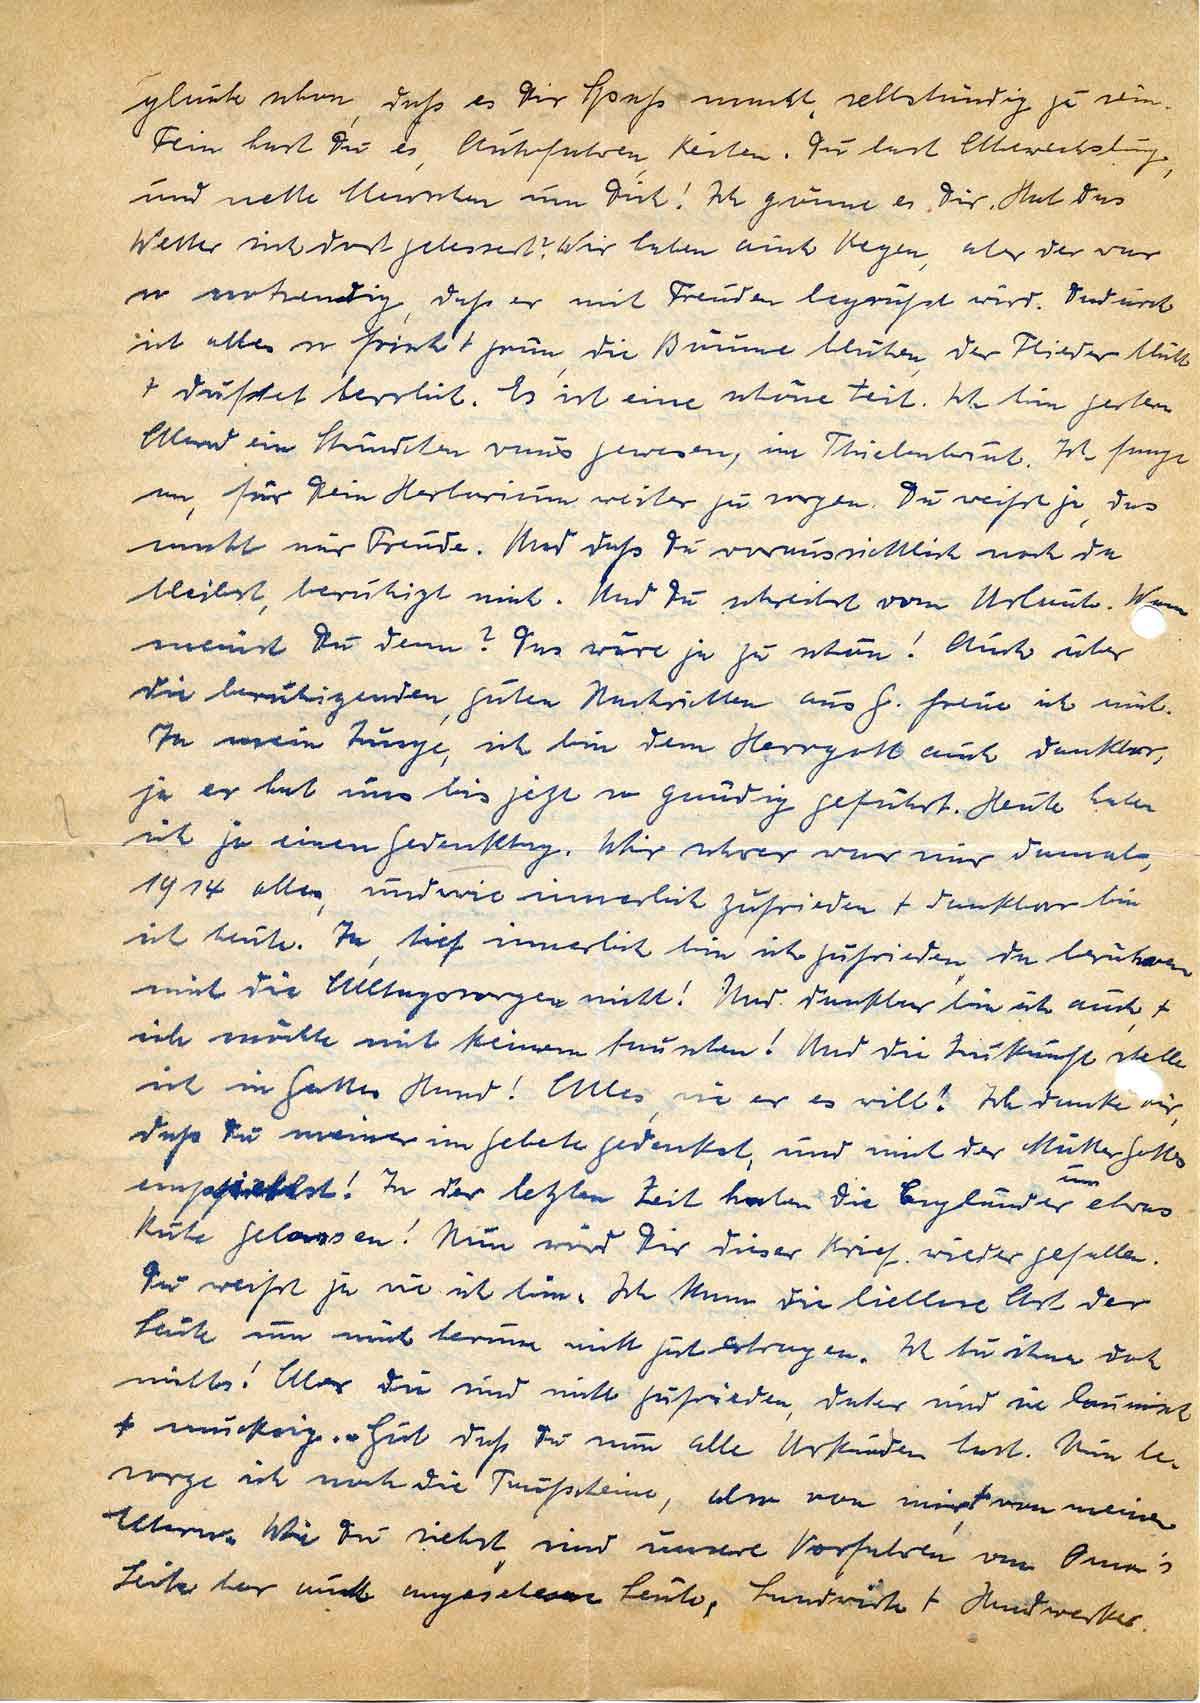 glaube schon, daß es Dir Spaß macht, selbständig zu sein.
Fein hast Du es, Autofahren, Reiten. Du hast Abwechslung,
und nette Menschen um Dich! Ich gönne es Dir. Hat das
Wetter sich dort gebessert? Wir haben auch Regen, aber der war
so notwendig, daß er mit Freuden begrüßt wird. Dadurch
ist alles so frisch + grün, die Bäume blühen, der Flieder blüht
+ duftet herrlich. Es ist eine schöne Zeit. Ich bin gestern
Abend ein Stündchen raus gewesen, im Thielenbruch. Ich fange
an, für Dein Herbarium weiter zu sorgen. Du weißt ja, das
macht mir Freude. Und daß Du voraussichtlich noch da
bleibst, beruhigt mich. Und Du schreibst vom Urlaub. Wann
meinst Du denn? Das wäre ja zu schön! Auch über
die beruhigenden, guten Nachrichten aus G. freue ich mich.
Ja mein Junge, ich bin dem Herrgott auch dankbar,
ja er hat uns bis jetzt so gnädig geführt. Heute habe
ich ja einen Gedenktag. Wie schwer war mir damals,
1914 alles, und wie innerlich zufrieden + dankbar bin
ich heute. Ja, tief innerlich bin ich zufrieden, da berühren
mich die Alltagssorgen nicht! Und dankbar bin ich auch, +
ich möchte mit keinem tauschen! Und die Zukunft stelle
ich in Gottes Hand! Alles, wie er es will! Ich danke Dir,
daß Du meiner im Gebete gedenkst, und mich der Mutter Gottes
empfiehlst! In der letzten Zeit haben die Engländer uns etwas
Ruhe gelassen! Nun wird Dir dieser Brief wieder gefallen.
Du weißt ja wie ich bin. Ich kann die lieblose Art der
Leute um mich herum nicht gut ertragen. Ich tu ihnen doch
nichts! Aber die sind nicht zufrieden, daher sind sie launisch
+ muckig. Gut daß Du nun alle Urkunden hast. Nun be-
sorge ich noch die Taufscheine, also von mir + von meinen
Eltern. Wie Du siehst, sind unsere Vorfahren von Oma's
Seite her auch angesehene Leute, Landwirte + Handwerker.